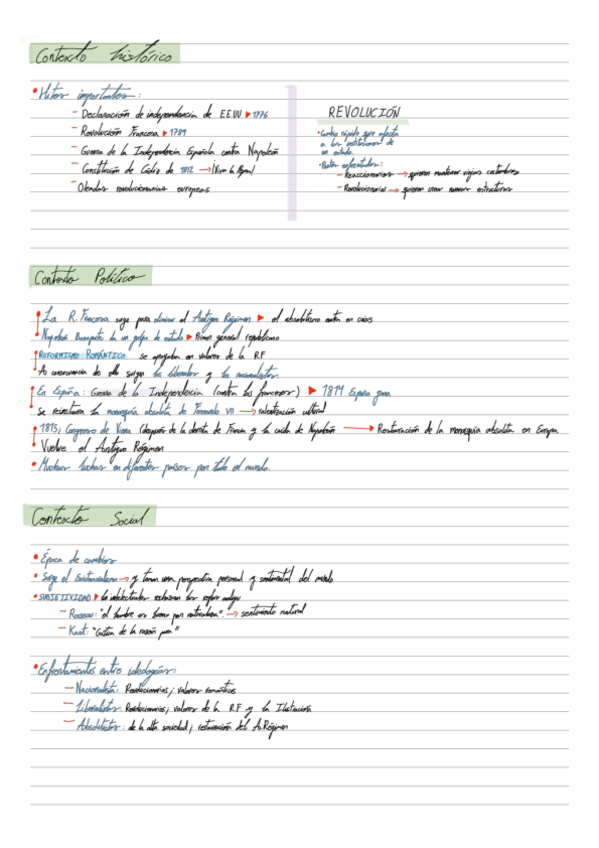 Contexto histórico
• Hitos importantes:
- Declaración de independencia de EEUU ▶ 1776
- Revolución Francesa ▶ 1789
- Guerra de la Independencia Española contra Napoleón
- Constitución de Cádiz de 1812 → ¡Viva la Pepa!
- Oleadas revolucionarias europeas
REVOLUCIÓN
• Cambio rápido que afecta
a las instituciones de
un estado.
• Partes enfrentadas:
- Reaccionarios → quieren mantener viejas costumbres
- Revolucionarios → quieren crear nuevas estructuras
Contexto Político
La R. Francesa surge para eliminar el Antiguo Régimen ▶ el absolutismo entra en crisis
Napoleón Bonaparte da un golpe de estado ▶ Primer general republicano
REFORMISMO ROMÁNTICO: se apoyaban en valores de la RF
A consecuencia de ello surgen los liberales y los nacionalistas.
En España: Guerra de la Independencia (contra los franceses) ▶ 1814 España gana
Se reinstaura la monarquía absoluta de Fernando VII → ralentización cultural
1815; Congreso de Viena (después de la derrota de Francia y la caída de Napoleón → Restauración de la monarquía absoluta en Europa
Vuelve el Antiguo Régimen
• Muchas luchas en diferentes países por todo el mundo.
Contexto Social
• Época de cambios
• Surge el → y toman una perspectiva personal y sentimental del mundo
• SUBJETIVIDAD ▶ los intelectuales rechazan las
- Rousseau: "el hombre es bueno por naturaleza". → sentimiento natural
- Kant: "Crítica de la razón pura"
• Enfrentamientos entre ideologías:
- Nacionalistas: Revolucionarios; valores románticos
- Liberalistas: Revolucionarios; valores de la RF y la Ilustración
- Absolutistas: de la alta sociedad; restauración del A.Régimen